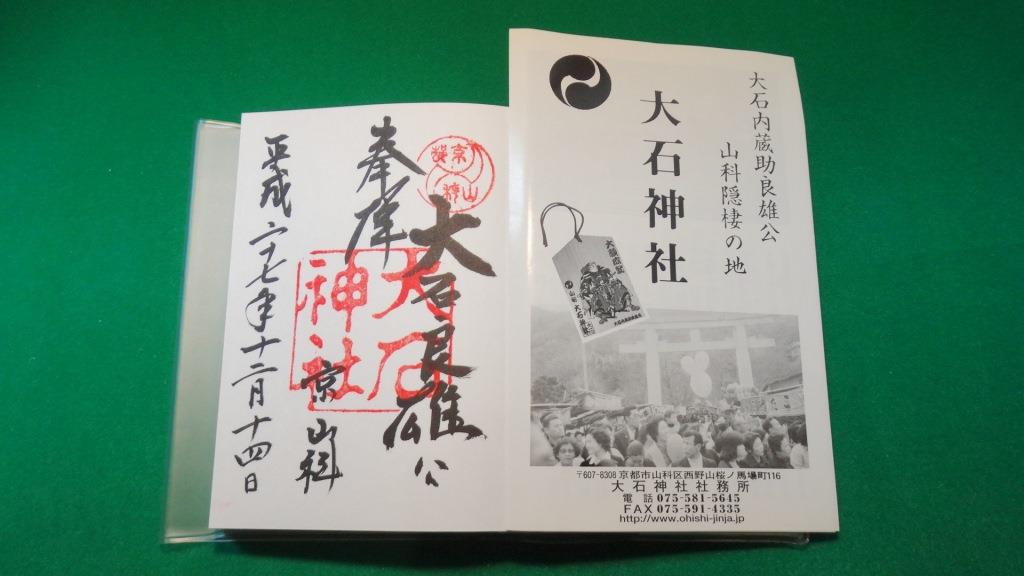 奉拝
大石良雄公
京山科
大石神社
平成二十七年十二月十四日
大石内蔵助良雄公
山科隠棲の地
大石神社
大石神社
〒607-8308 京都市山科区西野山桜ノ馬場町116
大石神社社務所
電話 075-581-5645
FAX 075-591-4335
http://www.ohishi-jinja.jp